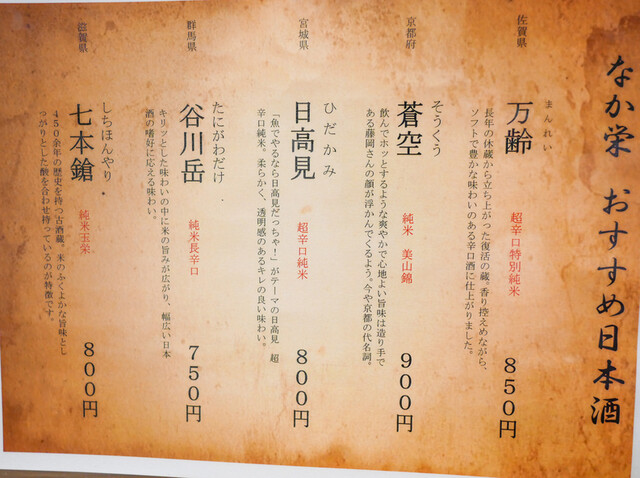 なか栄 おすすめ日本酒
佐賀県
まんれい
万齢
超辛口特別純米
850円
長年の休蔵から立ち上がった復活の蔵。香り控えめながら、
ソフトで豊かな味わいのある辛口酒に仕上がりました。
京都府
そうくう
蒼空
純米 美山錦
900円
飲んでホッとするような爽やかで心地よい旨味は造り手で
ある藤岡さんの顔が浮かんでくるよう。今や京都の代名詞。
宮城県
ひだかみ
日高見
超辛口純米
800円
「魚でやるなら日高見だっちゃ！」がテーマの日高見 超
辛口純米。柔らかく、透明感のあるキレの良い味わい。
群馬県
たにがわだけ
谷川岳
純米長辛口
750円
キリッとした味わいの中に米の旨みが広がり、幅広い日本
酒の嗜好に応える味わい。
滋賀県
しちほんやり
七本鎗
純米玉栄
800円
450余年の歴史を待つ古酒蔵。米のふくよかな旨味とし
っかりとした酸を合わせ持っているのが特徴です。